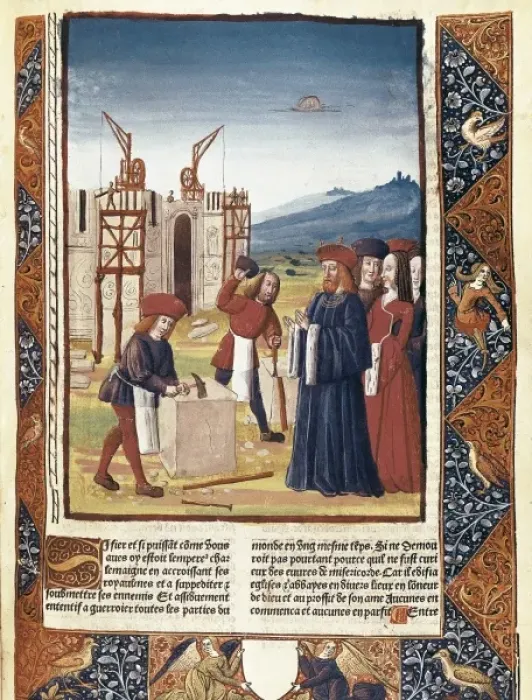 Si fier et si puissãt cõme vous
aues oy estoit lempere² char
lemaigne en accroissant ses
royaulmes et a suppediter ⁊
soubmettre ses ennemis Et assiduement
ententif a guerroier toutes les parties du
monde en vng mesme tẽps. Si ne demou
roit pas pourtant pource quil ne fust curi
eux des euures de misericorde. Car il edifia
eglises ⁊ abbayes en diuers lieux en lõneur
de dieu et au proffit de son ame Aucunes en
commenca et aucunes en parfist Entre